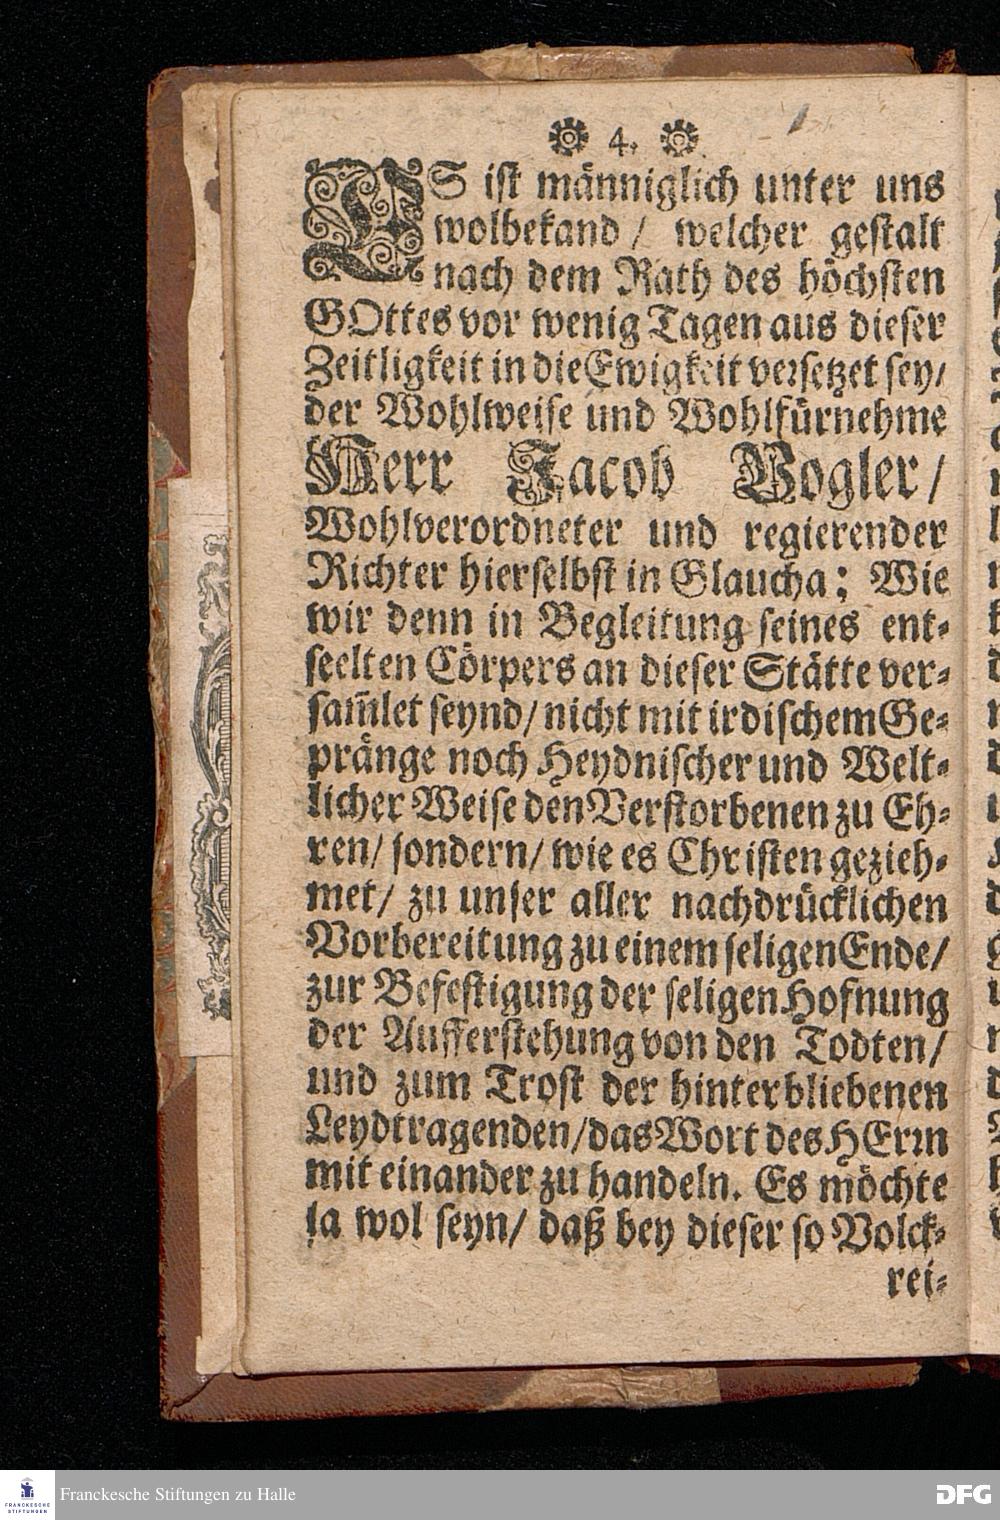 4.
ES ist männiglich unter uns
wolbekand / welcher gestalt
nach dem Rath des höchsten
GOttes vor wenig Tagen aus dieser
Zeitligkeit in die Ewigkeit versetzet sey/
der Wohlweise und Wohlfürnehme
Herr Jacob Vogler /
Wohlverordneter und regierender
Richter hierselbst in Glaucha; Wie
wir denn in Begleitung seines ent-
seelten Cörpers an dieser Stätte ver-
sam̃let seynd/ nicht mit irdischem Ge-
pränge noch Heydnischer und Welt-
licher Weise den Verstorbenen zu Eh-
ren/ sondern/ wie es Christen gezieh-
met/ zu unser aller nachdrücklichen
Vorbereitung zu einem seligen Ende/
zur Befestigung der seligen Hofnung
der Aufferstehung von den Todten/
und zum Trost der hinterbliebenen
Leydtragenden/ das Wort des HErrn
mit einander zu handeln. Es möchte
ja wol seyn/ daß bey dieser so Volck-
rei-
FRANCKESCHE
STIFTUNGEN
Franckesche Stiftungen zu Halle
DFG